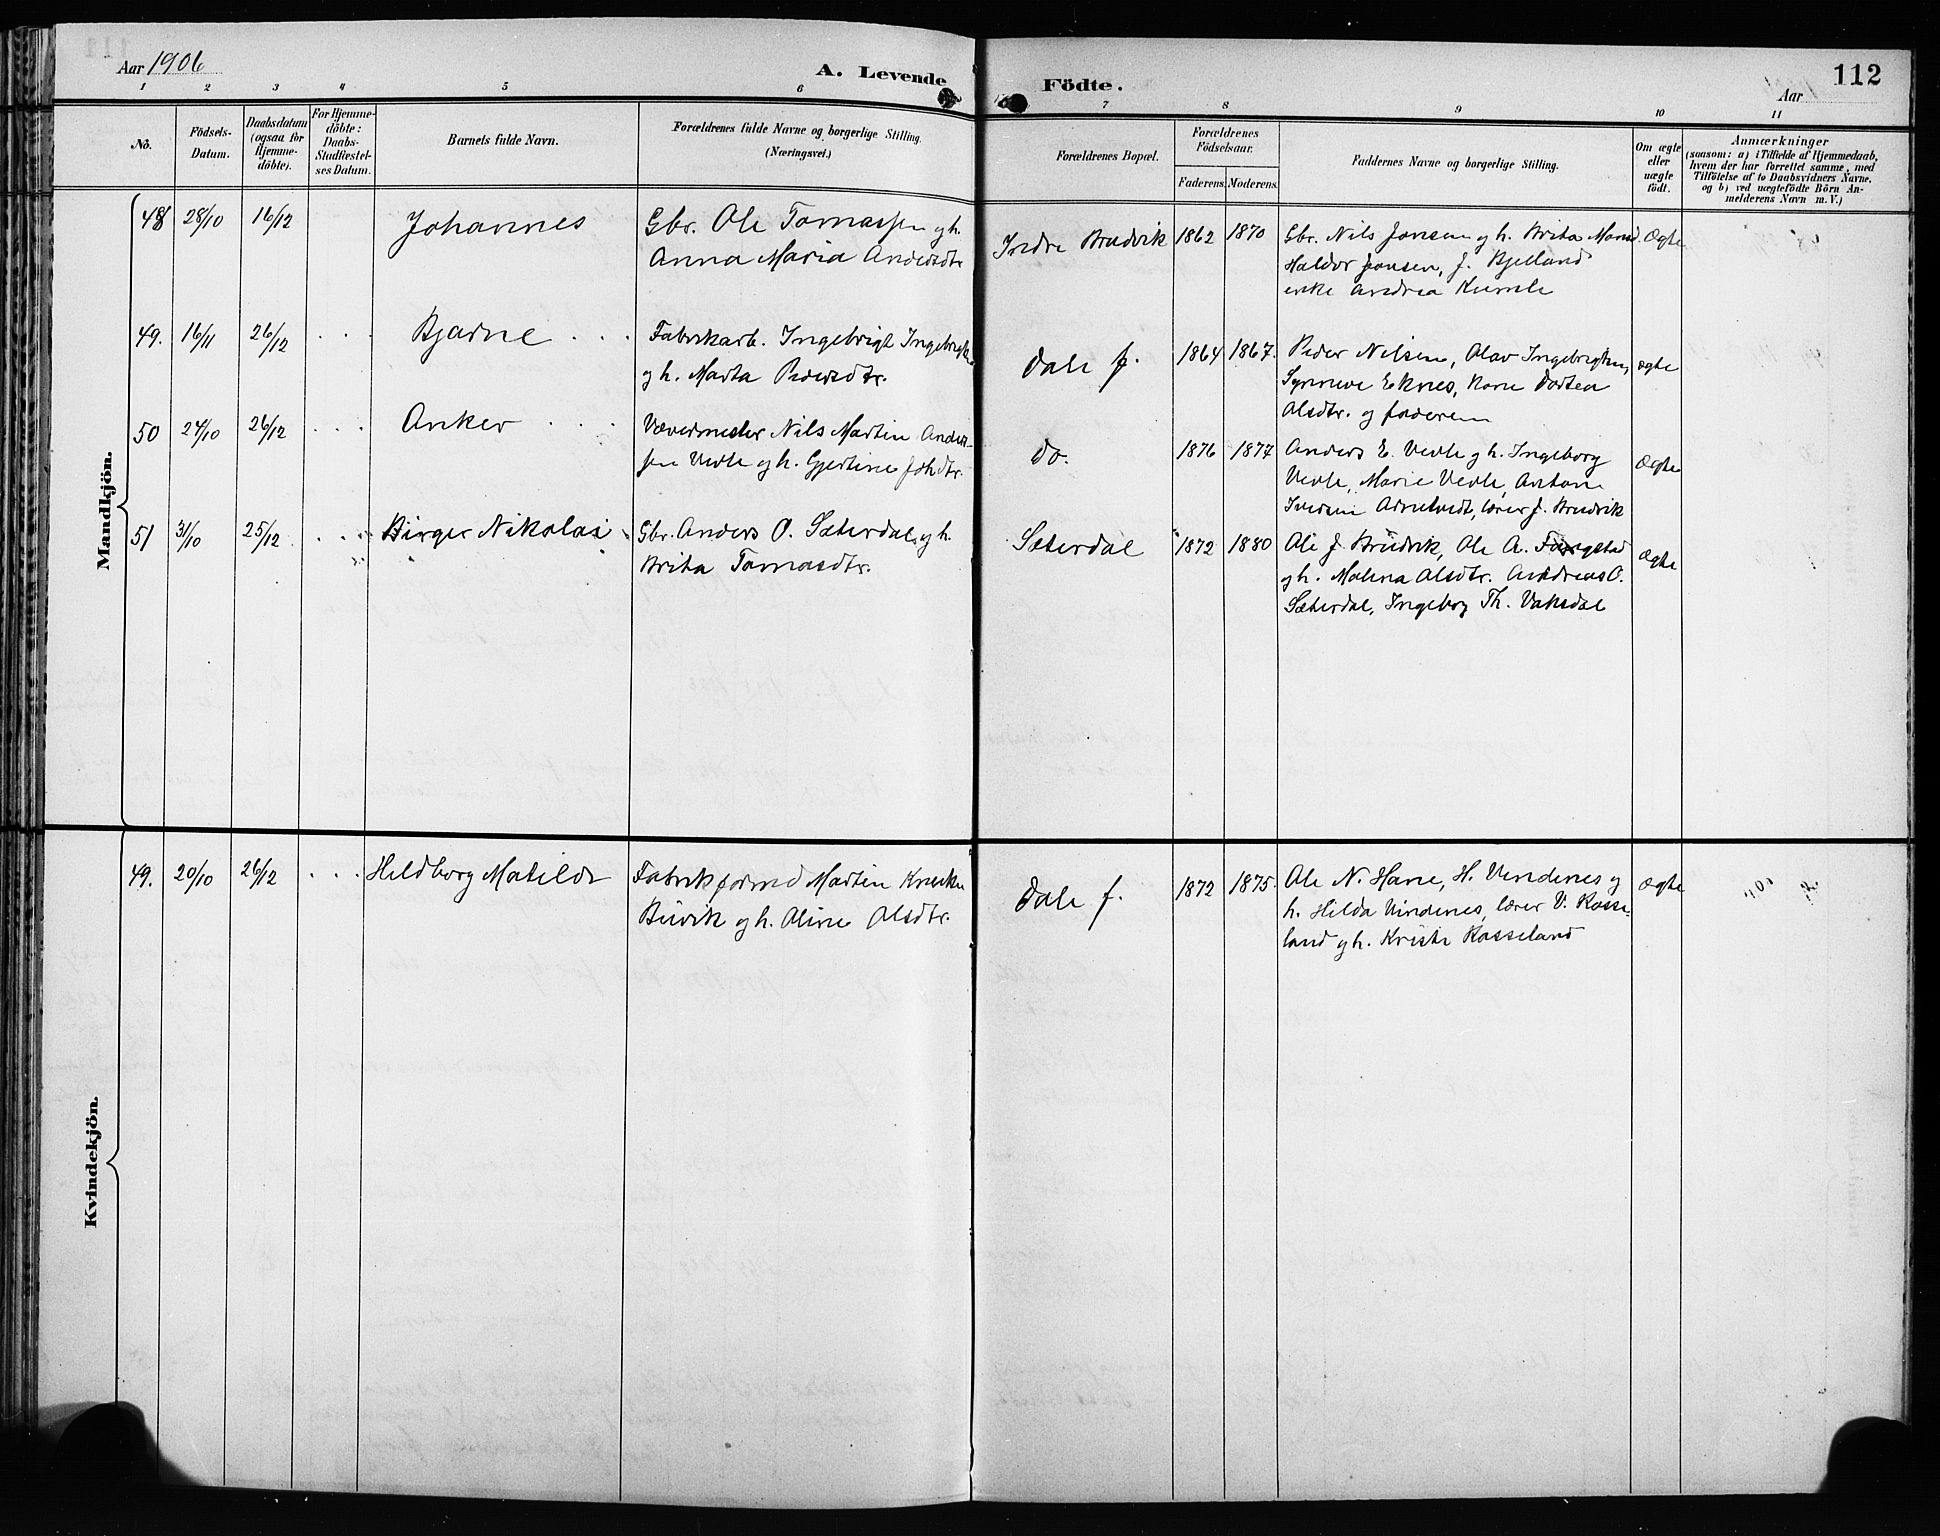 Aar 1906
A. Levende
Födte.
112
Aar
1 2 3 4 5 6 7 8 9 10 11
No.
Födsels-
Datum.
Daabsdatum
(ogsaa for
Hjemme-
döbte).
For Hjemme-
döbte:
Daabs-
Stadfæstel-
ses Datum.
Barnets fulde Navn.
Forældrenes fulde Navne og borgerlige Stilling.
(Næringsvei.)
Forældrenes Bopæl.
Forældrenes
Födselsaar.
Faderens. Moderens.
Faddernes Navne og borgerlige Stilling.
Om ægte
eller
uægte
födt.
Anmærkninger
(saasom: a) i Tilfælde af Hjemmedaab,
hvem der har forrettet samme, med
Tilföielse af to Daabsvidners Navne,
og b) ved uægtefödte Börn An-
melderens Navn m. V.)
Mandkjön.
48 28/10 16/12 Johannes
Gbr. Ole Tomassen og h.
Anna Maria Andersdtr.
Indre Brudvik 1862 1870
Gbr. Nils Jonsen og h. Brita Monsd.
Haldor Jonsen, J. Bjelland
enke Andrea Kumle
Ægte
49. 16/11 26/12 Bjarne
Fabrikarb. Ingebrigt Ingebrigtsen
og h. Marta Pedersdtr.
Dale f. 1864 1867.
Peder Nilsen, Olav Ingebrigtsen,
Synneve Eknes, Kone Dortea
Olsdtr. og faderen
ægte
50 24/10 26/12 Anker
Vævermester Nils Martin Ander-
sen Vevle og h. Gjertine Joh.dtr.
do. 1876 1877
Anders E. Vevle og h. Ingeborg
Vevle, Marie Vevle, Anton
Iversen Arnetvedt, lærer J. Brudvik
Ægte
51 31/10 25/12 Birger Nikolai
Gbr. Anders O. Sæterdal og h.
Brita Tomasdtr.
Sæterdal 1872 1880
Ole J. Brudvik, Ole A.
og h. Malena Olsdtr. Andreas O.
Sæterdal, Ingeborg Th. Vaksdal
Ægte
Kvindekjön.
49. 20/10 26/12 Hildborg Matilde
Fabrikformd Martin
og h. Oline Olsdtr.
Dale f. 1872 1875.
Ole N. Hane, H. Vindenes og
h. Hilda Vindenes, lærer V. Rosse-
land og h. Kristi Rosseland
Ægte